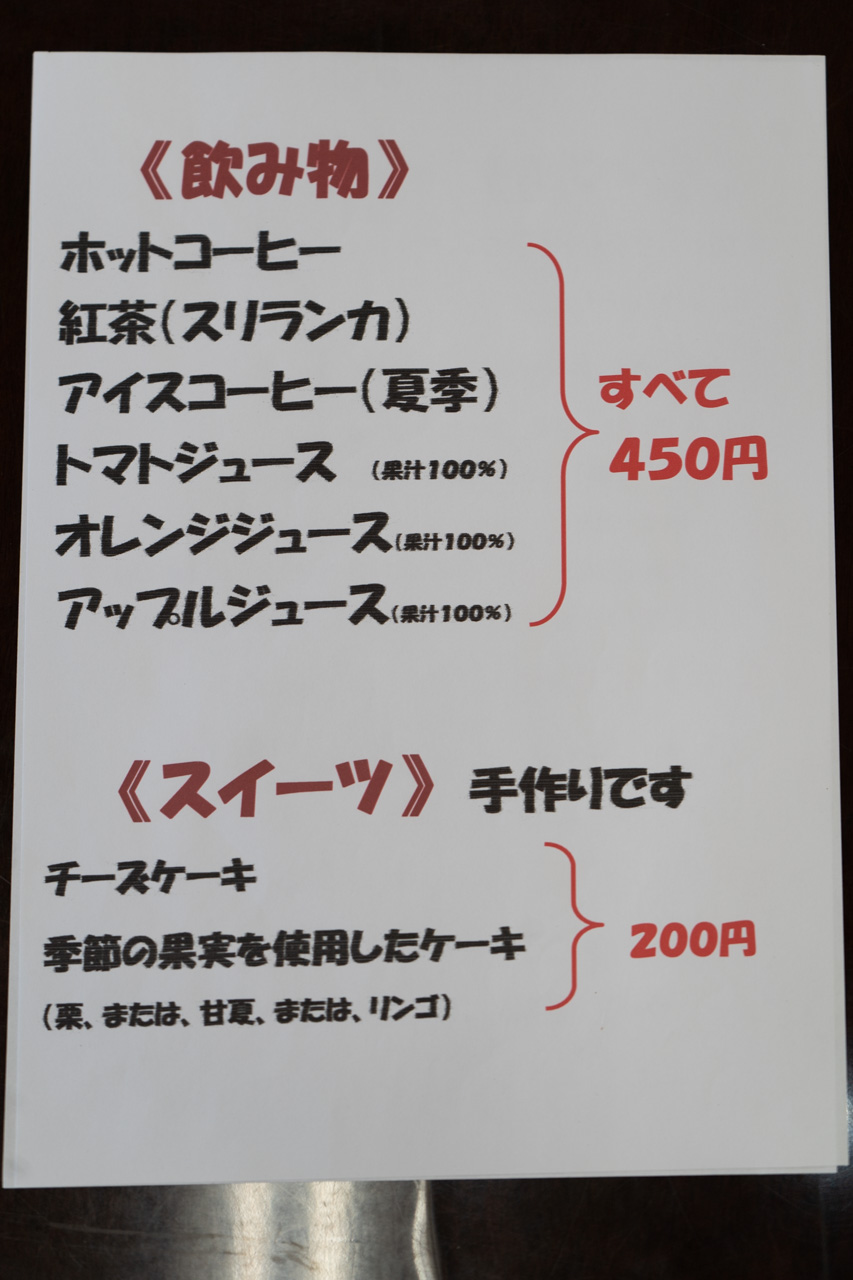 《飲み物》
ホットコーヒー
紅茶(スリランカ)
アイスコーヒー(夏季)
トマトジュース (果汁100%)
オレンジジュース(果汁100%)
アップルジュース(果汁100%)
すべて
450円
《スイーツ》 手作りです
チーズケーキ
季節の果実を使用したケーキ
(栗、または、甘夏、または、リンゴ)
200円